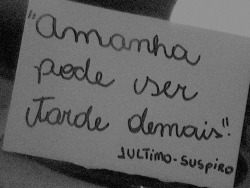 "Amanha
pode ser
tarde demais".
JULTIMO-SUSPIRO